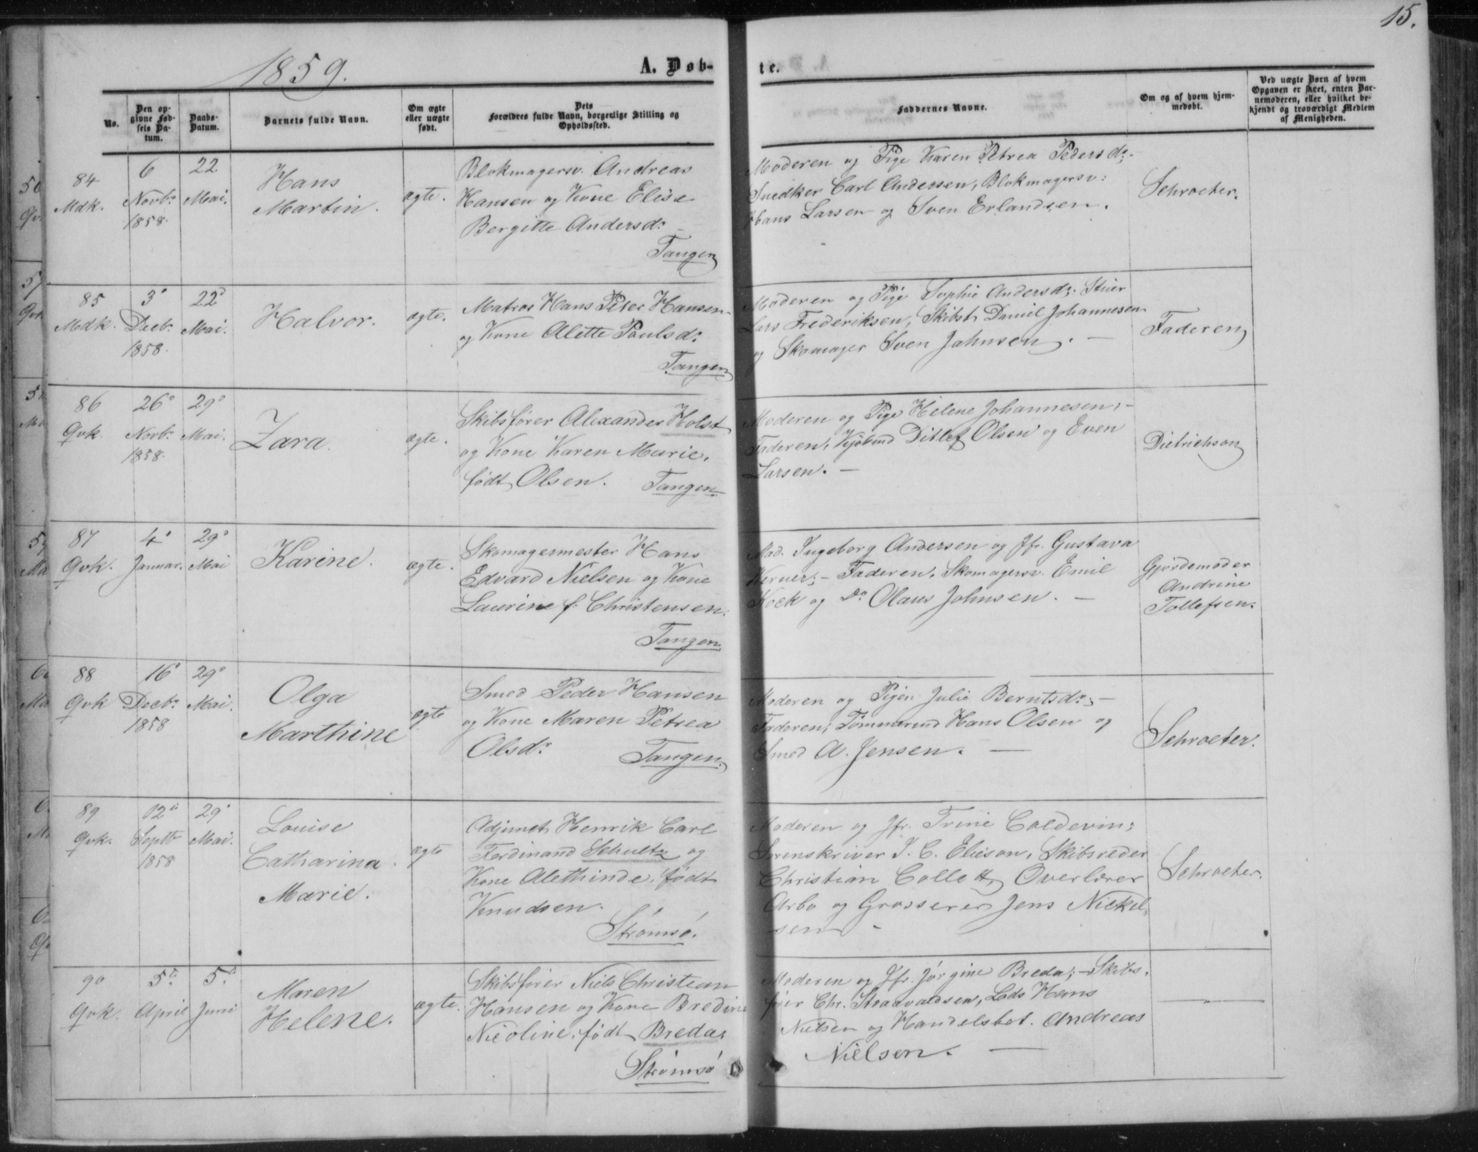 15.
1859.
A. Døb-
te.
No.
Den op-
givne Fød-
sels Da-
tum.
Daabs-
Datum.
Barnets fulde Navn.
Om ægte
eller uægte
født.
Dets
Forældres fulde Navn, borgerlige Stilling og
Opholdssted.
Faddernes Navne.
Om og af hvem hjem-
medøbt.
Ved uægte Børn af hvem
Opgaven er skeet, enten Bar-
nemoderen, eller hvilket be-
kjendt og troværdigt Medlem
af Menigheden.
84
Mdk.
6
Novbr
1858.
22
Mai.
Hans
Martin.
ægte.
Blokmagersv. Andreas
Hansen og Kone Elise
Bergitte Andersd:
Tangen
Moderen og Pige Karen Petrea Pedersd:-
Snedker Carl Andersen, Blokmagersv:
Hans Larsen og Sven Erlandsen.
Schroeter.
85
Mdk.
3
Decbr
1858.
22
Mai.
Halvor.
ægte.
Matros Hans Peter Hansen
og Kone Alette Paulsd:
Tangen
Moderen og Pige Sophie Andersd; Stuer
Lars Frederiksen, Skibst. Daniel Johannesen
og Skomager Sven Jahnsen. -
Faderen
86
Qvk
26
Novbr
1858.
29
Mai.
Zara.
ægte.
Skibsfører Alexander Holst
og Kone Karen Marie,
født Olsen. Tangen
Moderen og Pige Helene Johannesen; -
Faderen, Kjøbmd Ditlef Olsen og Even
Larsen. -
Dietrichson
87
Qvk.
4
Januar.
29
Mai
Karine.
ægte.
Skomagermester Hans
Edvard Nielsen og Kone
Laurine f. Christensen.
Tangen
Mad. Ingeborg Andersen og Jfr. Gustava
Werner; - Faderen, Skomagersv. Emil
Kock og Do Olaus Johnsen. -
Gjordemoder
Andrine
Tollefsen.
88
Qvk
16
Decbr.
1858
29
Mai.
Olga
Marthine
ægte
Smed Peder Hansen
og Kone Maren Petrea
Olsd:
Tangen
Moderen og Pigen Julie Berntsd:; -
Faderen, Tømmermd Hans Olsen og
Smed A. Jensen. -
Schroeter.
89
Qvk.
12
Septb
1858
29
Mai
Louise
Catharina
Marie.
ægte
Adjunct Henrik Carl
Ferdinand Schultz og
Kone Alethinde, født
Knudsen.
Strømsø.
Moderen og Jfr. Trine Coldevin;
Sorenskriver J. C. Elieson, Skibsreder
Christian Collett, Overlærer
Arbo og Grosserer Jens Nickel-
sen -
Schroeter.
90
Qvk.
5
April
5
Juni
Maren
Helene.
ægte.
Skibsfører Niels Christian
Hansen og Kone Bredine
Nicoline, født Breda,
Strømsø
Moderen og Jfr. Jørgine Breda; - Skibs-
fører Chr. Lods Hans
Nielsen og Handelsbet. Andreas
Nielsen. -